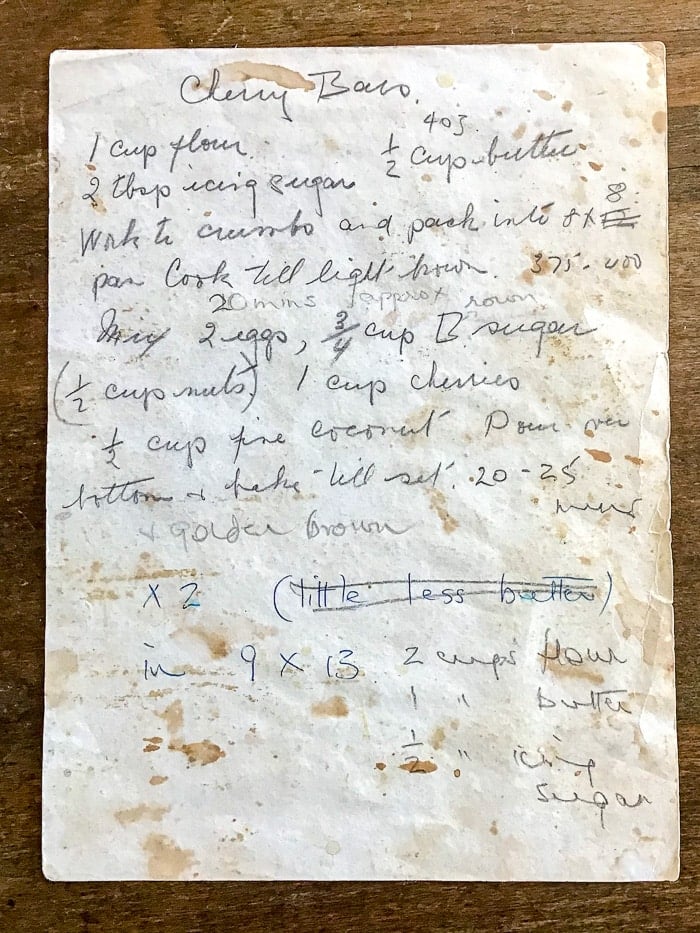 Cherry Bars.
403.
1 cup flour. 1/2 cup butter
2 tbsp icing sugar
8
Work to crumbs and pack into 8 x
pan Cook till light brown. 375-400
20 mins approx
Mix 2 eggs, 3/4 cup B sugar
(1/2 cup nuts) 1 cup cherries
1/2 cup fine coconut Pour over
bottom & bake till set. 20-25
mins
& golden brown
x 2 (little less butter)
in 9 x 13 2 cups flour
1 " butter
1/2 " icing
sugar